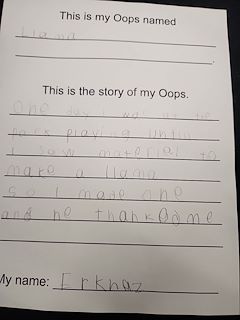 This is my Oops named
Llama
.
This is the story of my Oops.
One day I was at the
park playing until
I saw material to
make a llama
so I made one
and he thanked me
My name: Erknaz